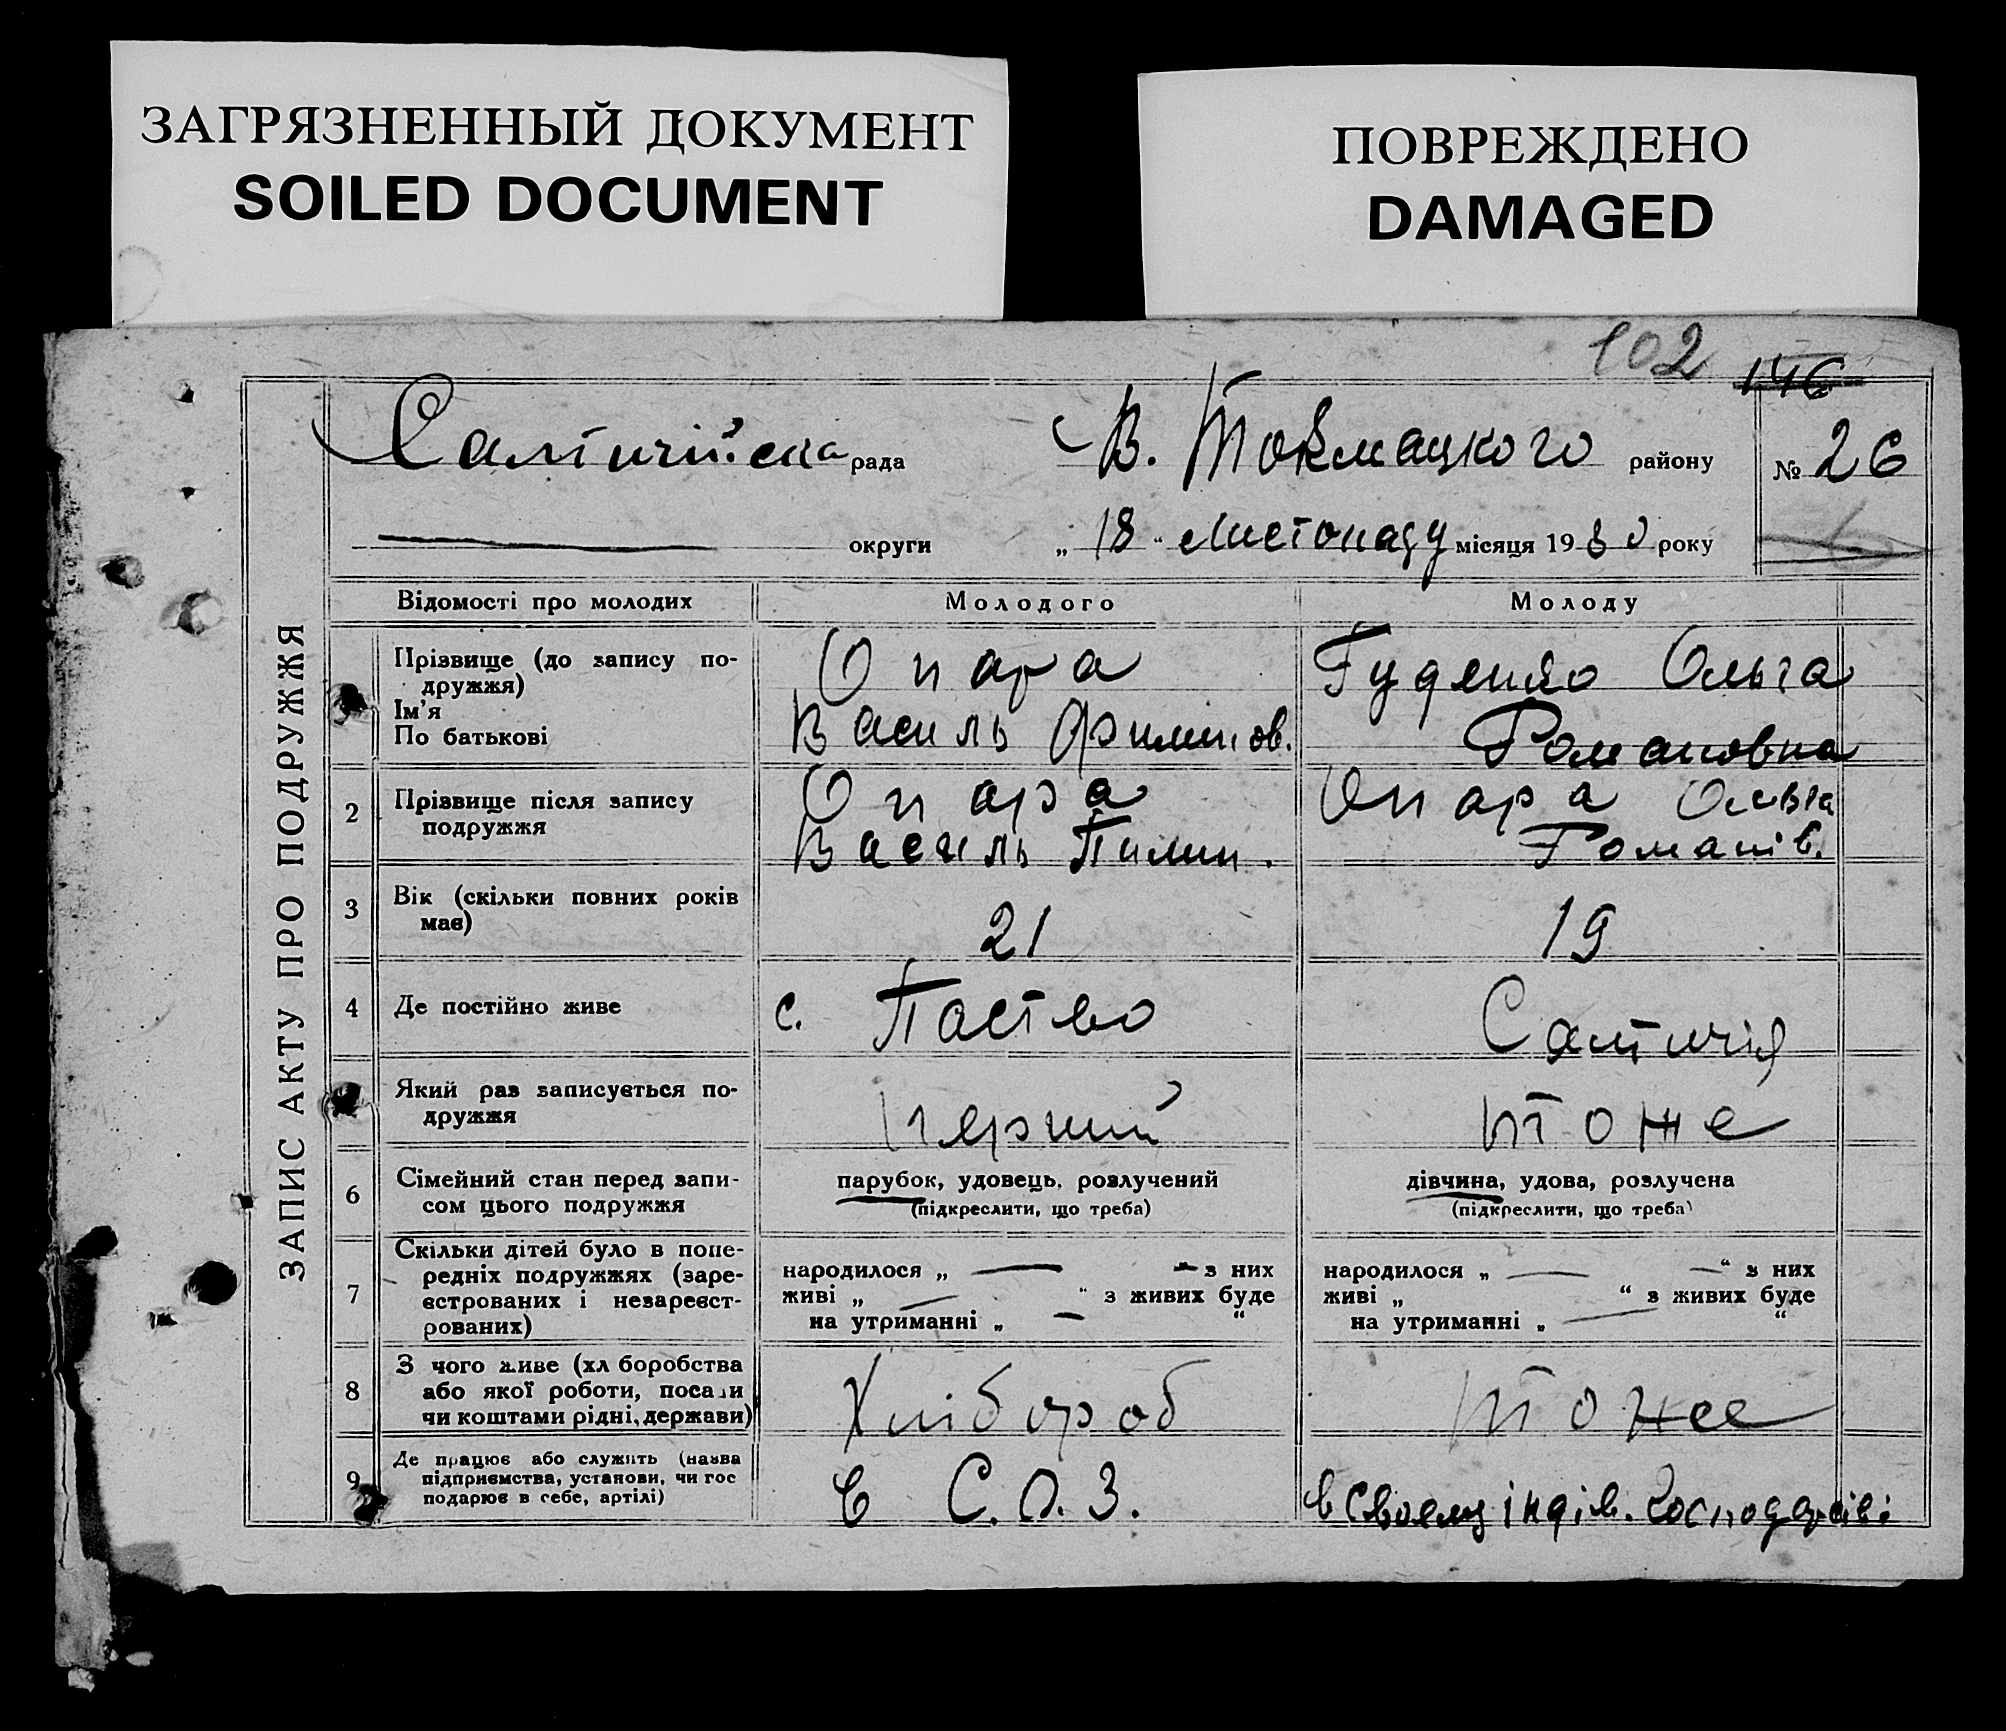 ЗАГРЯЗНЕННЫЙ ДОКУМЕНТ
SOILED DOCUMENT
ПОВРЕЖДЕНО
DAMAGED
102
146
Салтичійска рада В. Токмацкого району № 26
округи „ 18 “ листопаду місяця 1930 року
ЗАПИС АКТУ ПРО ПОДРУЖЖЯ
Відомості про молодих Молодого Молоду
Прізвище (до запису по-
дружжя)
Ім'я
По батькові
Опара
Василь Филимов.
Гуденко Ольга
Романовна
2 Прізвище після запису
подружжя
Опара
Василь Пилип.
Опара Ольга
Романів.
3 Вік (скільки повних років
має)
21
19
4 Де постійно живе
с.
Салтичія
Який раз записується по-
дружжя
Перший
тоже
6 Сімейний стан перед запи-
сом цього подружжя
парубок, удовець, розлучений
(підкреслити, що треба)
дівчина, удова, розлучена
(підкреслити, що треба)
7 Скільки дітей було в попе-
редніх подружжях (заре-
єстрованих і незареєст-
рованих)
народилося „ — “ з них
живі „ — “ з живих буде
на утриманні „ — “
народилося „ — “ з них
живі „ “ з живих буде
на утриманні „ — “
8 З чого живе (хл боробства
або якої роботи, посади
чи коштами рідні, держави)
Хлібороб
тоже
9 Де працює або служить (назва
підприємства, установи, чи гос
подарює в себе, артілі)
в С.О.З.
в своему індів. господарсві